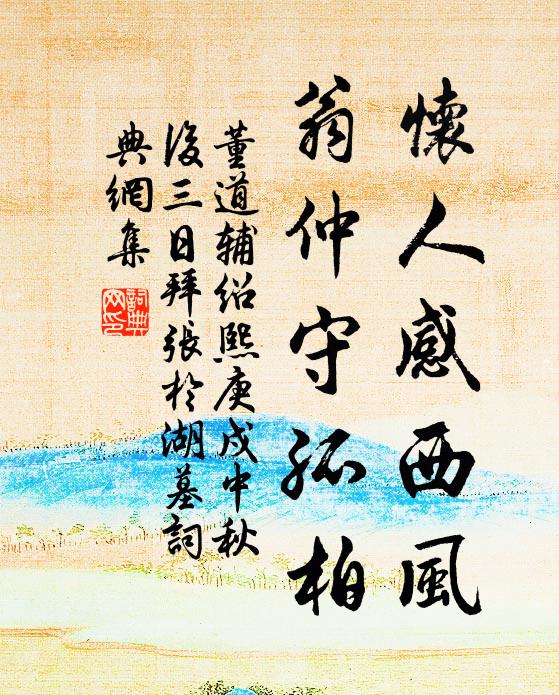 懷人感西風
翁仲守孤柏
董道輔紹熙庚戌中秋
後三日拜張於湖墓詞
典網集
詞典
网印